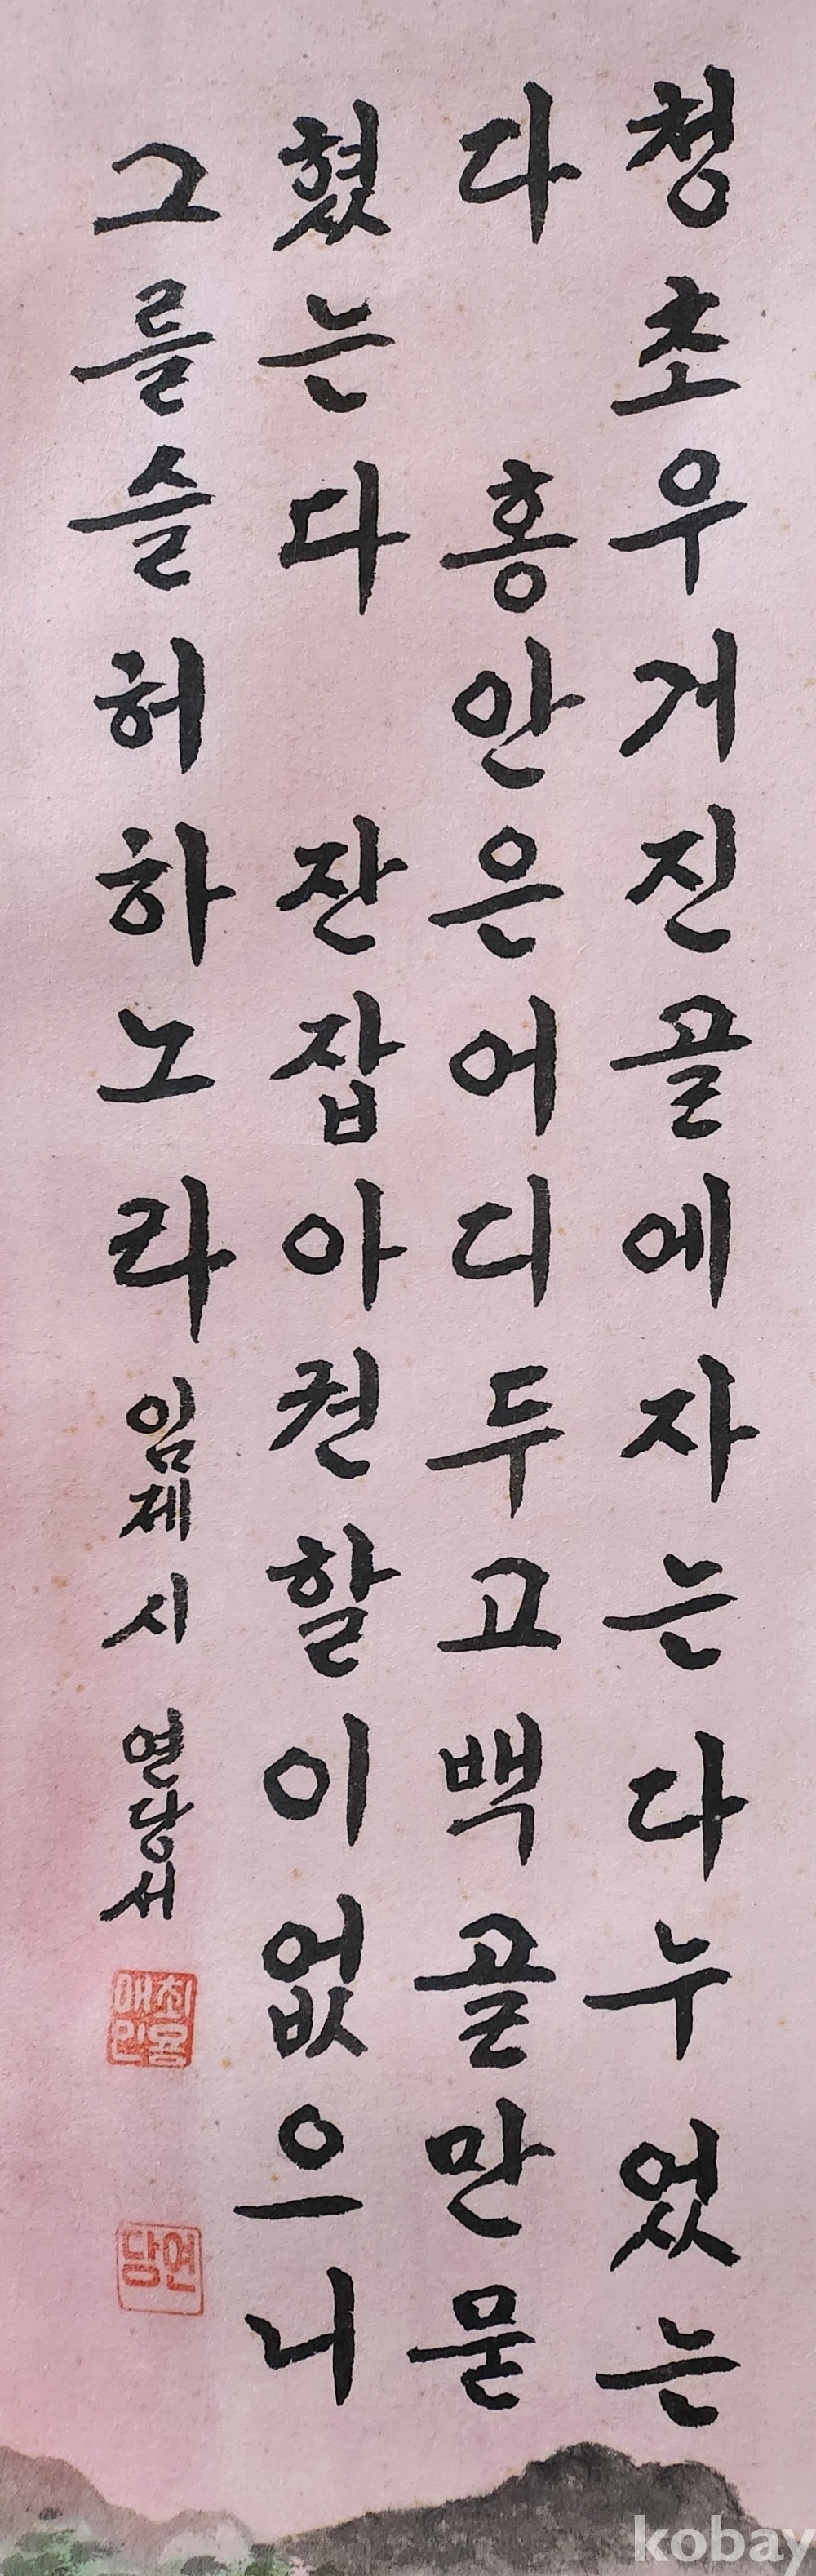 청초우거진골에자는다누었는
다 홍안은어디두고백골만묻
혔는다 잔잡아권할이없으니
그를슬허하노라 임제시 연당서
연당
kobay